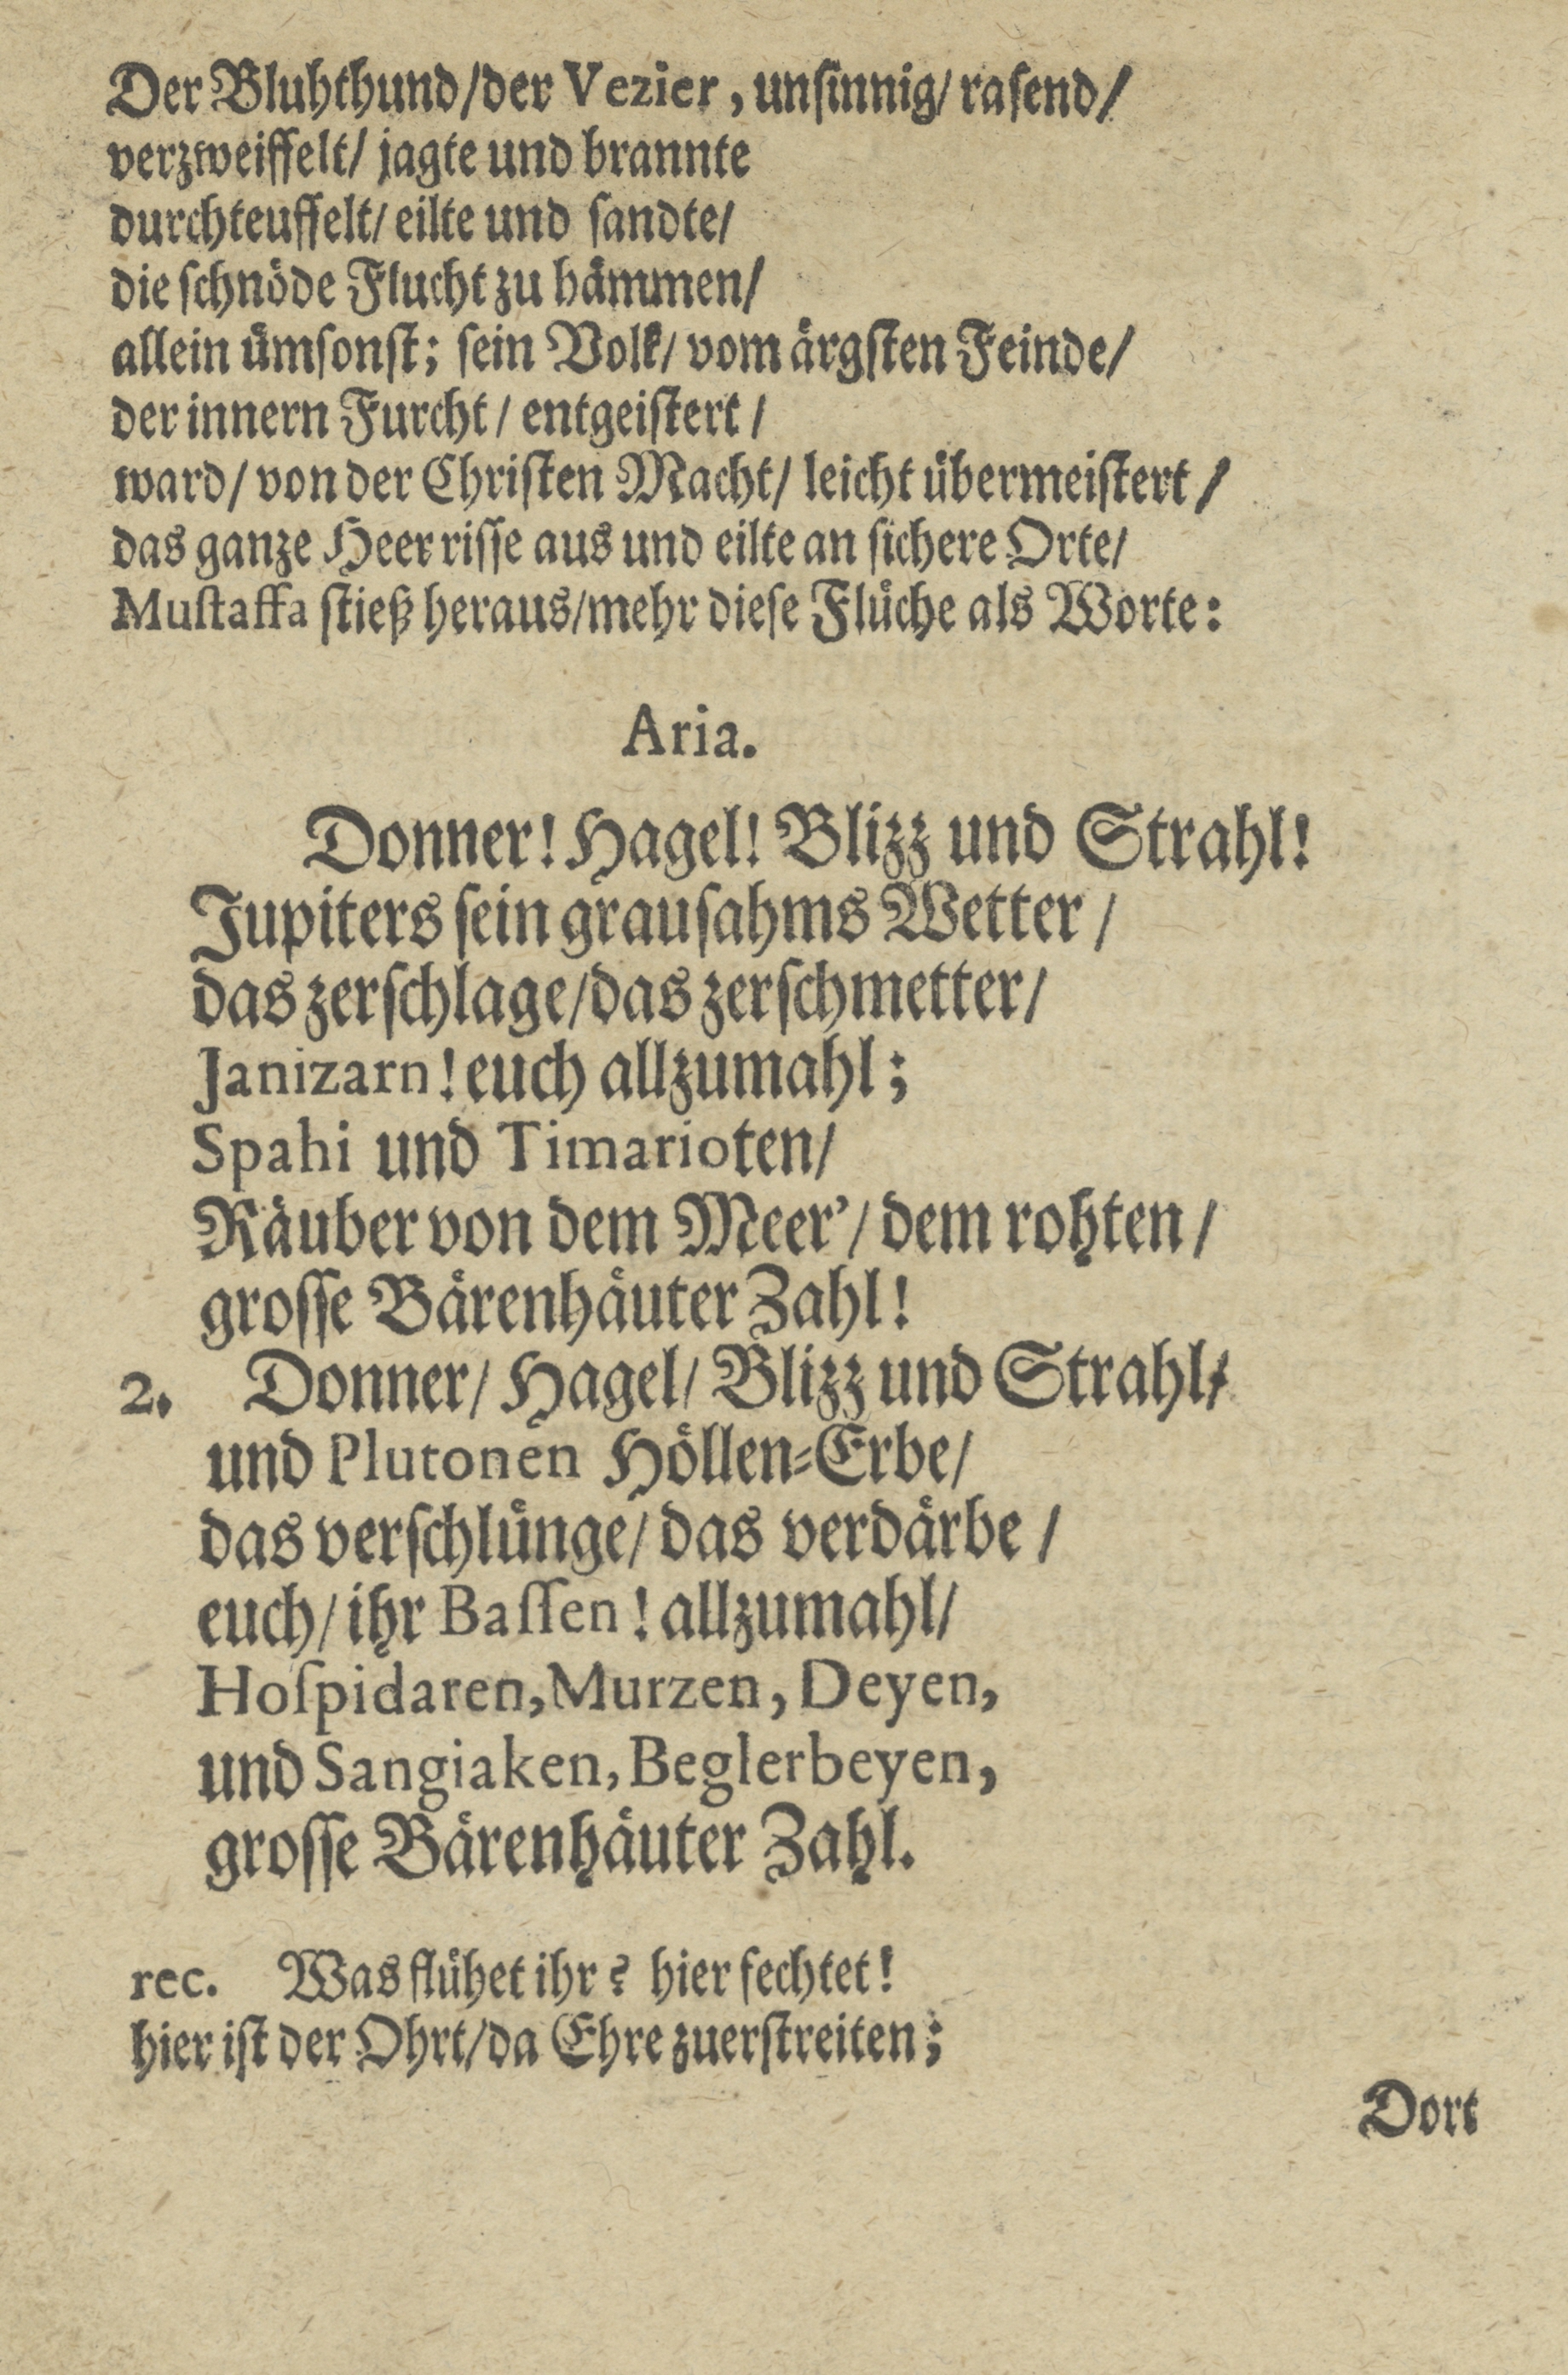 Der Bluhthund/der Vezier, unſinnig/ raſend/
verzweiffelt/ jagte und brannte
durchteuffelt/ eilte und ſandte/
die ſchnöde Flucht zu hämmen/
allein ümſonſt; ſein Volk/ vom ärgſten Feinde/
der innern Furcht/ entgeiſtert/
ward/ von der Chriſten Macht/ leicht übermeiſtert/
das ganze Heer riſſe aus und eilte an ſichere Orte/
Muſtaffa ſtieß heraus/mehr dieſe Flüche als Worte:
Aria.
Donner! Hagel! Blizz und Strahl!
Jupiters ſein grauſahms Wetter/
das zerſchlage/das zerſchmetter/
Janizarn! euch allzumahl;
Spahi und Timarioten/
Räuber von dem Meer'/ dem rohten/
groſſe Bärenhäuter Zahl!
2. Donner/ Hagel/ Blizz und Strahl/
und Plutonen Höllen-Erbe/
das verſchlünge/ das verdärbe/
euch/ ihr Baſſen! allzumahl/
Hoſpidaren, Murzen, Deyen,
und Sangiaken, Beglerbeyen,
groſſe Bärenhäuter Zahl.
rec. Was flühet ihr? hier fechtet!
hier iſt der Ohrt/da Ehre zuerſtreiten;
Dort